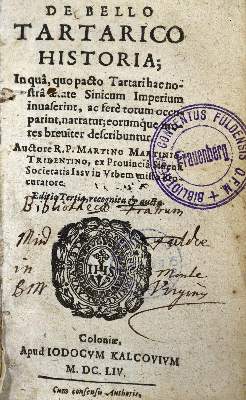 DE BELLO
TARTARICO
HISTORIA;
In quâ, quo pacto Tartari hac no-
strâ ætate Sinicum Imperium
inuaserint, ac ferè totum occu-
parint, narratur; eorumque mo-
res breuiter describuntur.
Auctore R. P. MARTINO MARTINIO,
TRIDENTINO, ex Prouinciâ Sinensi
Societatis IESV in Vrbem misso Pro-
curatore.
Editio Tertia, recognita & aucta.
CONVENTUS FULDENSIS
Frauenberg
BIBLIOTHECA
Bibliotheca Fratrum
Min Fuldæ
in Monte
B M Virginis
IHS
Coloniæ,
Apud IODOCVM KALCOVIVM
M. DC. LIV.
Cum consensu Authoris.